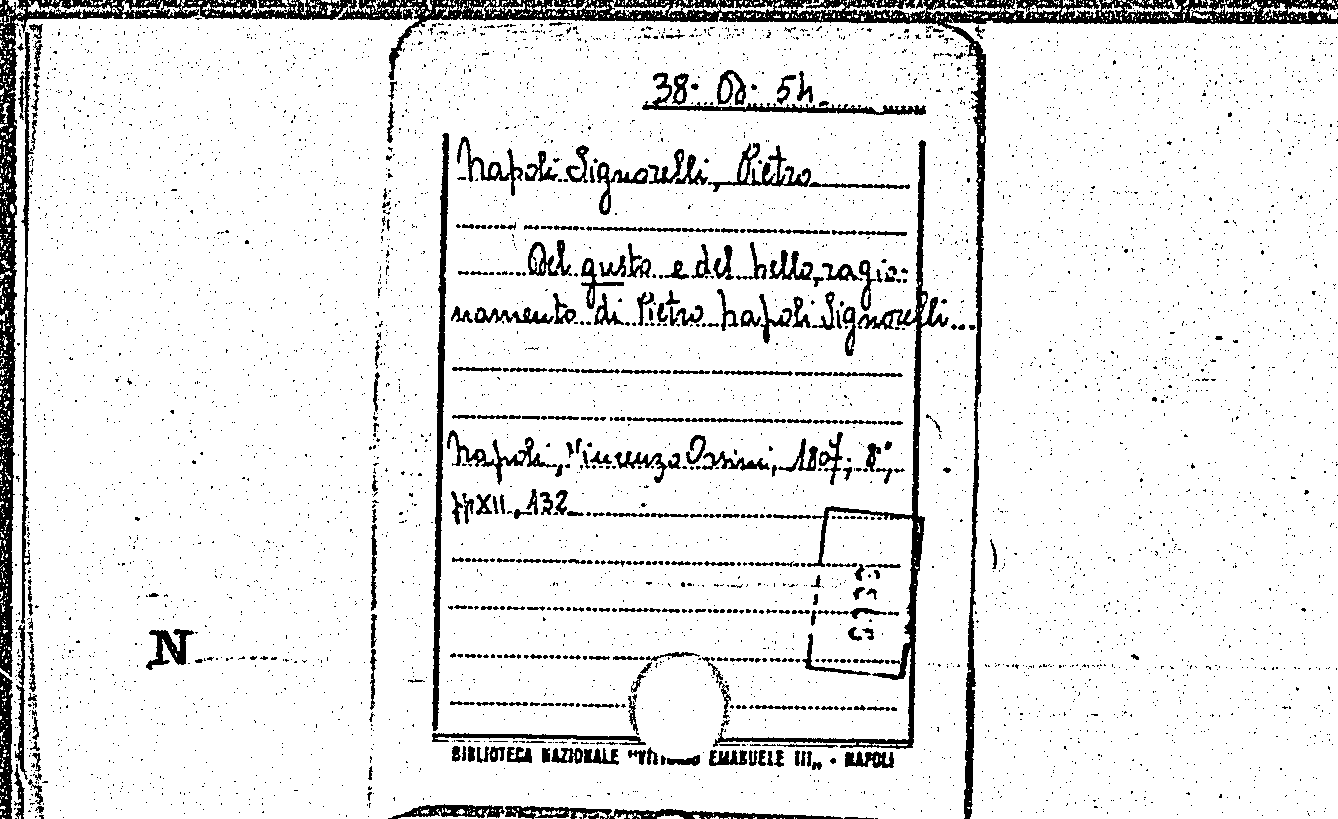 38. Od. 54.
Napoli Signorelli, Pietro
Del gusto e del bello, ragio-
namento di Pietro Napoli Signorelli...
Napoli, Vincenzo Orsini, 1807; 8°,
pp XII, 132
N
BIBLIOTECA NAZIONALE "VITTORIO EMANUELE III„ - NAPOLI